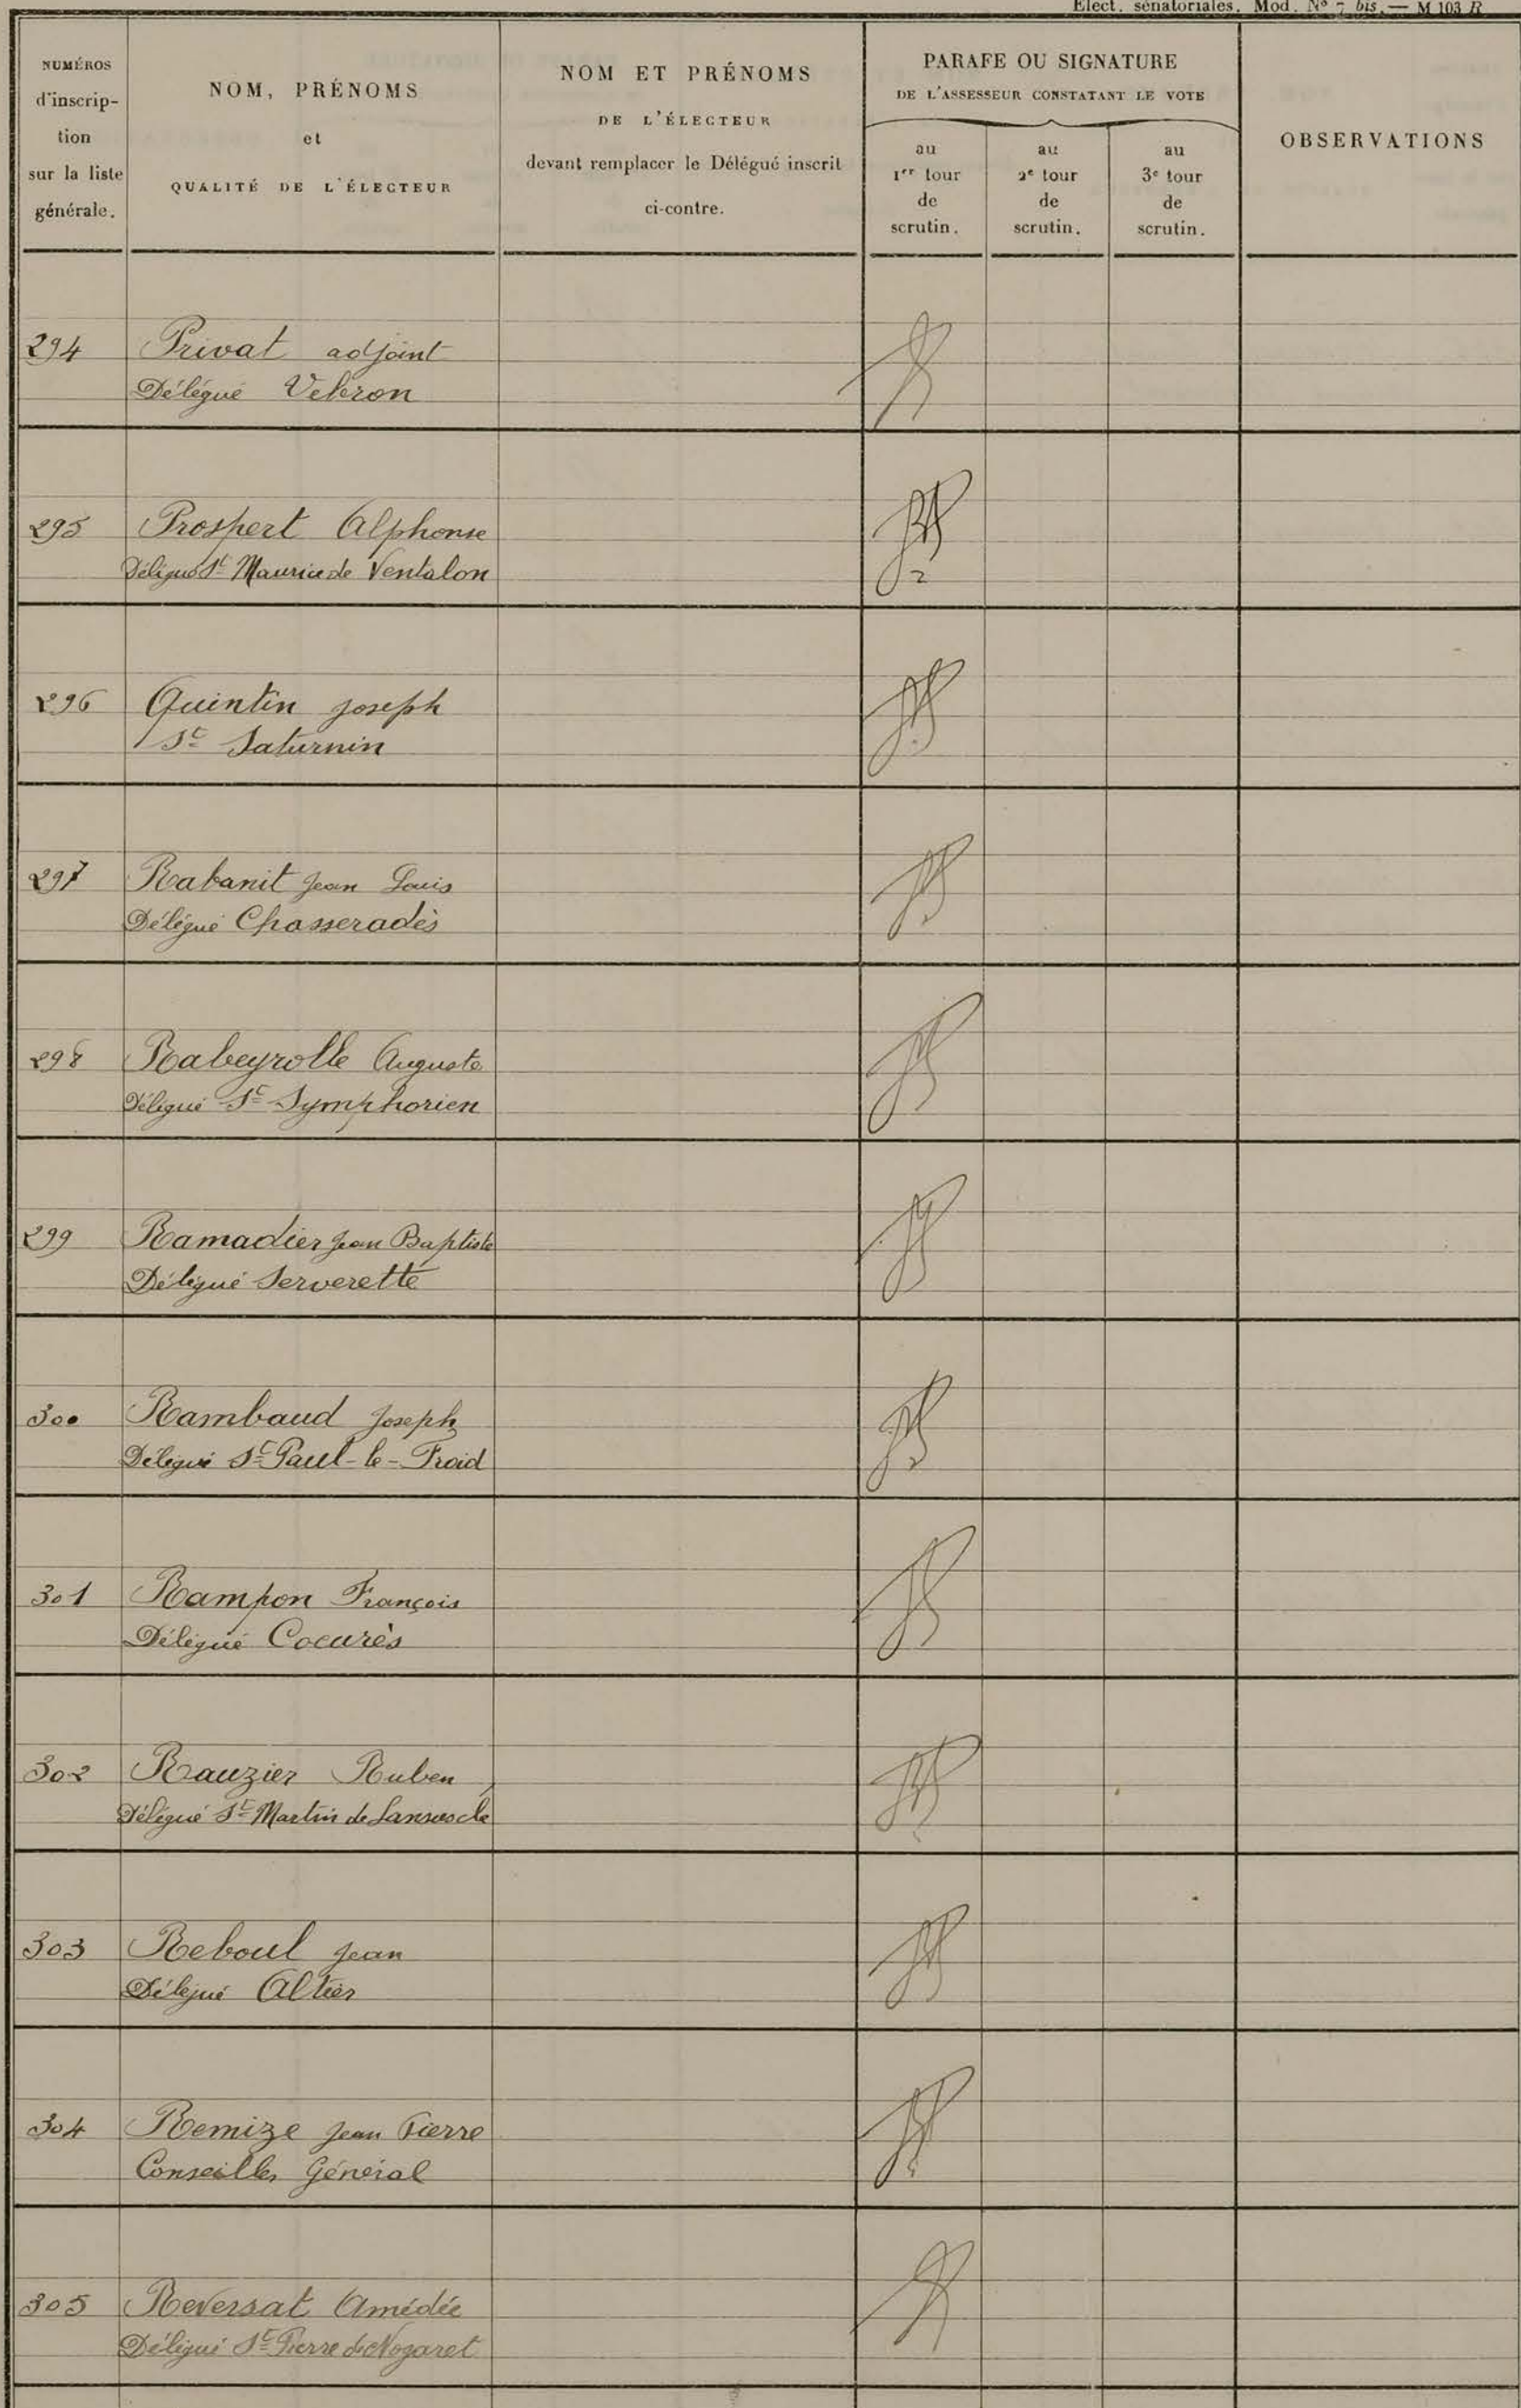 Elect. sénatoriales. Mod. N° 7 bis. — M 103 R
NUMÉROS
d'inscrip-
tion
sur la liste
générale.
NOM, PRÉNOMS
et
QUALITÉ DE L'ÉLECTEUR
NOM ET PRÉNOMS
DE L'ÉLECTEUR
devant remplacer le Délégué inscrit
ci-contre.
PARAFE OU SIGNATURE
DE L'ASSESSEUR CONSTATANT LE VOTE
au
1er tour
de
scrutin.
au
2e tour
de
scrutin.
au
3e tour
de
scrutin.
OBSERVATIONS
294 Privat adjoint
Délégué Vebron
295 Prospert Alphonse
Délégué St Maurice de Ventalon
296 Quintin Joseph
St Saturnin
297 Rabanit Jean Louis
Délégué Chasseradès
298 Rabeyrolle Auguste
Délégué St Symphorien
299 Ramadier Jean Baptiste
Délégué Serverette
300 Rambaud Joseph
Délégué St Paul-le-Froid
301 Rampon François
Délégué Cocurès
302 Rauzier Ruben
Délégué St Martin de Lansuscle
303 Reboul Jean
Délégué Altier
304 Remize Jean Pierre
Conseiller Général
305 Reversat Amédée
Délégué St Pierre de Nogaret